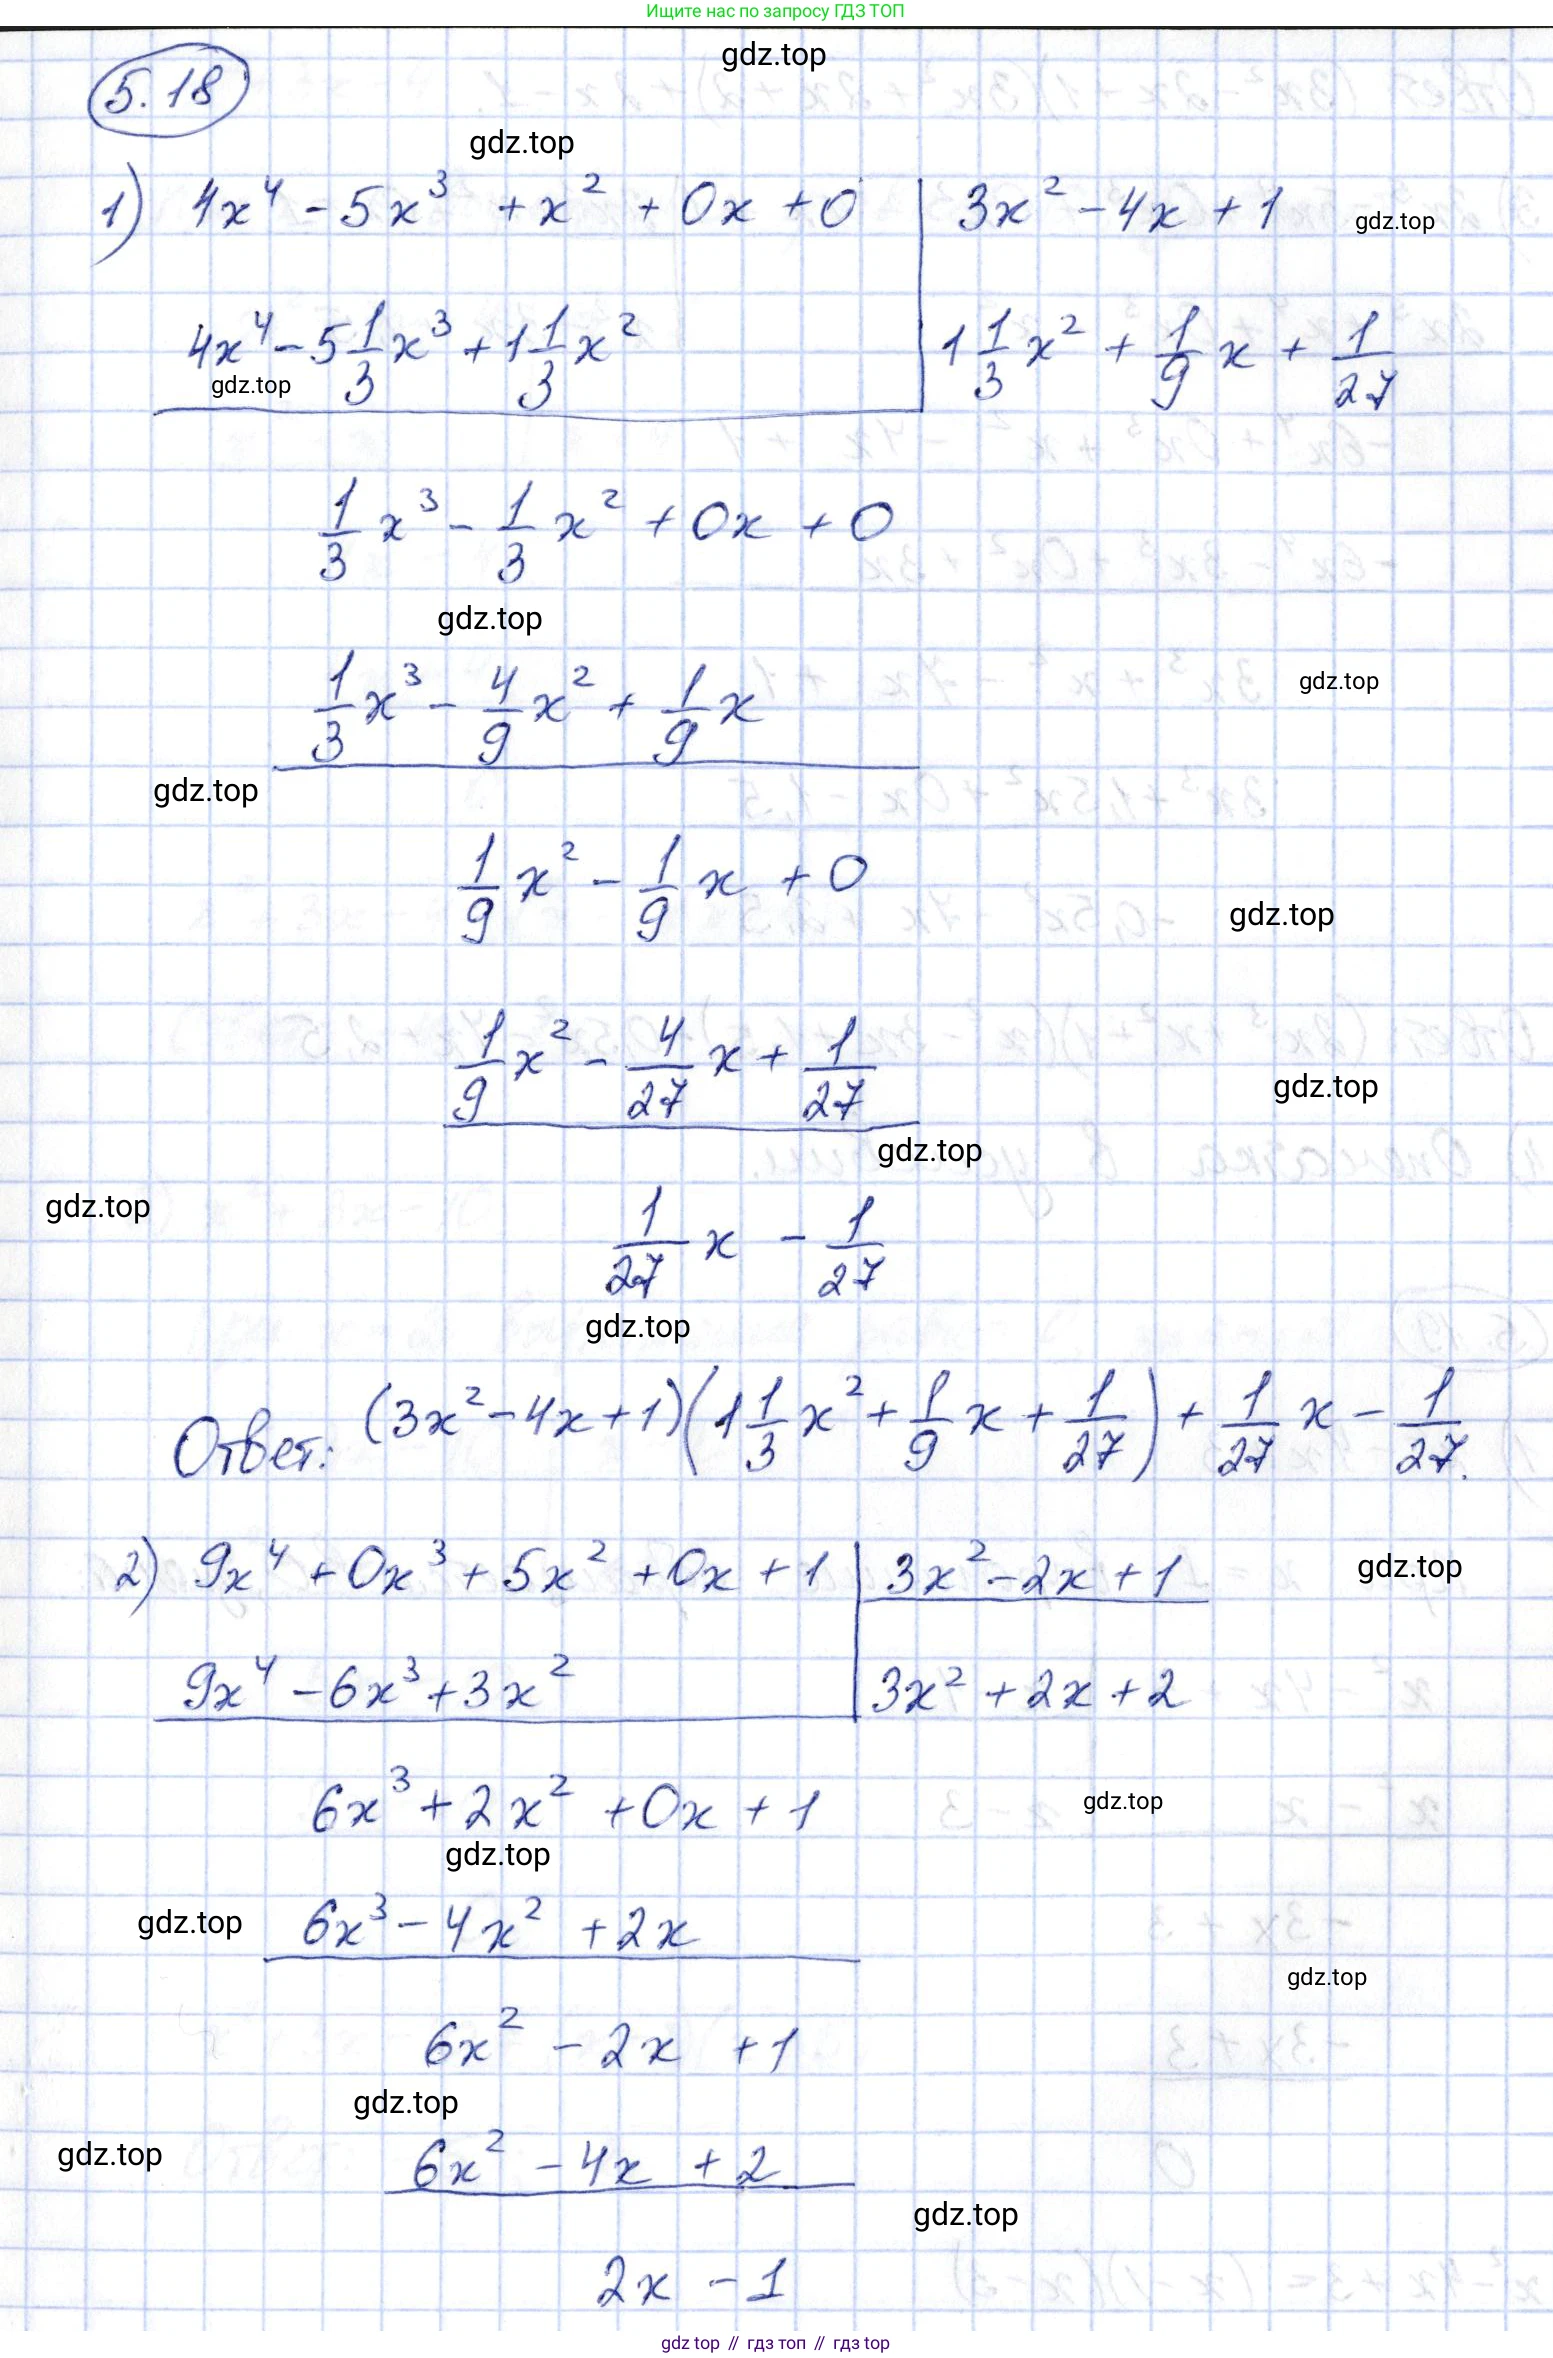 Ищите нас по запросу ГДЗ ТОП
gdz.top
5.18
gdz.top
1) 4x⁴ - 5x³ + x² + 0x + 0 | 3x² - 4x + 1
gdz.top
4x⁴ - 5 1/3 x³ + 1 1/3 x² | 1 1/3 x² + 1/9 x + 1/27
gdz.top
1/3 x³ - 1/3 x² + 0x + 0
gdz.top
1/3 x³ - 4/9 x² + 1/9 x
gdz.top
gdz.top
1/9 x² - 1/9 x + 0
gdz.top
1/9 x² - 4/27 x + 1/27
gdz.top
gdz.top
gdz.top
1/27 x - 1/27
gdz.top
Ответ: (3x² - 4x + 1)(1 1/3 x² + 1/9 x + 1/27) + 1/27 x - 1/27.
2) 9x⁴ + 0x³ + 5x² + 0x + 1 | 3x² - 2x + 1
gdz.top
9x⁴ - 6x³ + 3x² | 3x² + 2x + 2
6x³ + 2x² + 0x + 1
gdz.top
gdz.top
6x³ - 4x² + 2x
gdz.top
gdz.top
6x² - 2x + 1
gdz.top
6x² - 4x + 2
gdz.top
gdz.top
2x - 1
gdz top // гдз топ // гдз top